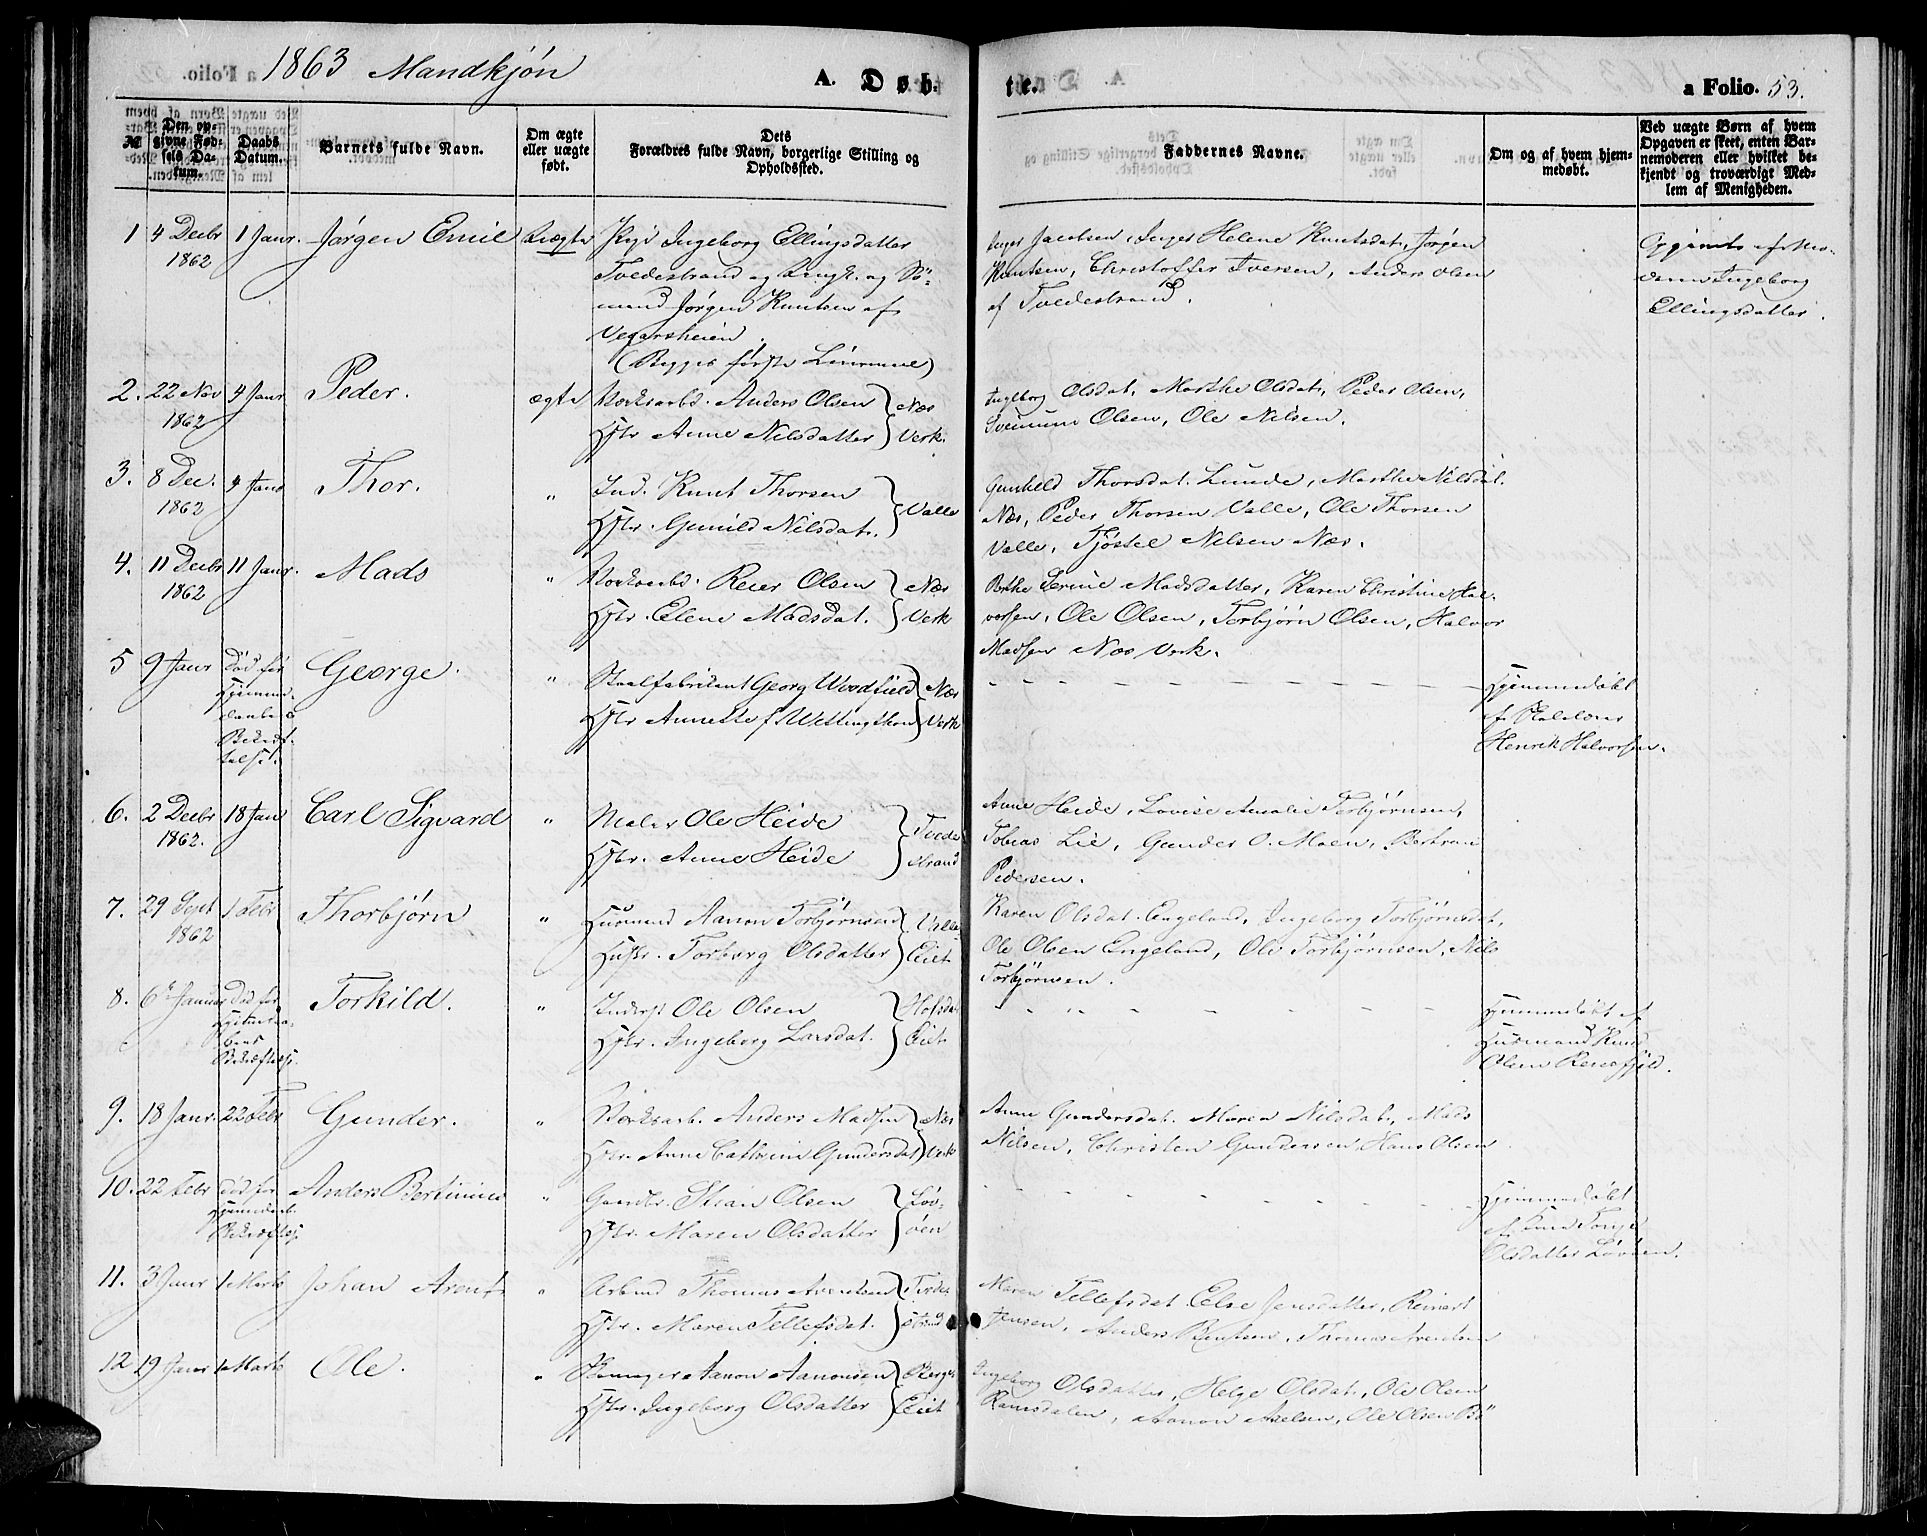 1863 Mandkjøn
A. Døb-
te.
a Folio. 53.
№
Den op-
givne Fød-
sels Da-
tum.
Daabs
Datum.
Barnets fulde Navn.
Om ægte
eller uægte
født.
Dets
Forældres fulde Navn, borgerlige Stilling og
Opholdssted.
Faddernes Navne.
Om og af hvem hjem-
medøbt.
Ved uægte Børn af hvem
Opgaven er skeet, enten Bar-
nemoderen eller hvilket be-
kjendt og troværdigt Med-
lem af Menigheden.
1 4 Decbr 1862 1 Janr. Jørgen Emil Uægte
Pige Ingeborg Ellingsdatter
Tvedestrand og Ungk. og Sö-
mand Jørgen Knutsen af
Vegarsheien.
(Begges første Leiermaal)
Inger Jacobsen, Inger Helene Knutsdat., Jørgen
Knutsen, Christoffer Iversen, Anders Olsen
af Tvedestrand.
Opgivet af Mo-
deren Ingeborg
Ellingsdatter.
2. 22 Nov 1862 4 Janr Peder. ægte
Værksarbd. Anders Olsen
Hstr Anne Nilsdatter
Næs
Verk.
Ingeborg Olsdat, Marthe Olsdat, Peder Olsen,
Olsen, Ole Nilsen.
3. 8 Dec. 1862 4 Janr Thor. "
Ind. Knut Thorsen
Hstr. Gunild Nilsdat.
Valle
Gunhild Thorsdat. Lunde, Marthe Nilsdat.
Næs, Peder Thorsen Valle, Ole Thorsen
Valle, Tjøstel Nilsen Næs.
4. 11 Decbr 1862 11 Janr. Mads "
Værksarbd. Reier Olsen
Hstr. Elene Madsdat.
Næs
Verk
Berthe Serine Madsdatter, Karen Christine Hal-
vorsen, Ole Olsen, Torbjørn Olsen, Halvor
Madsen Næs Verk.
5 9 Janr Død før
Hjemme-
daabens
Bekræf-
telse.
George. "
Staalfabrikant Georg Woodfield
Hstr Annette f. Wettingsthon
Næs
Verk
Hjemmedøbt
af Skolelærer
Henrik Halvorsen.
6. 2 Decbr 1862. 18 Jan Carl Sigvard "
Maler Ole Heide
Hstr. Anne Heide
Tvede
strand
Anne Heide, Lovise Amalie Torbjørnsen,
Tobias Lie, Gunder O. Moen, Bertram
Pedersen.
7. 29 Sept 1862 1 Febr Thorbjørn "
Husmand Aanon Torbjørnsen
Hustr. Torborg Olsdatter
Valle
Eiet
Karen Olsdat. Engeland, Ingeborg Torbjørnsdat,
Ole Olsen Engeland, Ole Torbjørnsen, Nils
Torbjörnsen.
8. 6te Januar Død før
Hjemmeda-
bens
Bekræftelse.
Torkild. "
Inderst Ole Olsen
Hstr. Ingeborg Larsdat.
Hofsdal
Eiet
Hjemmedøbt af
Husmand Knud
Olsen
9. 18 Janr. 22 Febr Gunder. "
Værksarb. Anders Madsen
Hstr. Anne Cathrine Gundersdat
Næs
Verk
Anne Gundersdat. Maren Nilsdat., Mads
Nilsen, Christen Gundersen Hans Olsen
10. 22 Febr død før
Hjemmedaab.
Bekræftelse.
Anders Bertinius "
Gaardbr. Stian Olsen
Hstr. Maren Olsdatter
Løv-
öen
Hjemmedøbt
af
Olsdatter Løvöen.
11. 3 Janr 1 Marts Johan Arent "
Arbmd Thomas Arentsen
Hstr. Maren Tellefsdat.
Tvede-
strand
Maren Tellefsdat. Else Jensdatter, Reinert
Jensen, Anders Bentsen, Thomas Arentsen
12 19 Janr 1 Marts Ole. "
Aanon Aanonsen
Hstr. Ingeborg Olsdatter
Berge
Eiet
Ingeborg Olsdatter, Helge Olsdat., Ole Olsen
Ramsdalen, Aanon Axelsen, Ole Olsen Bö